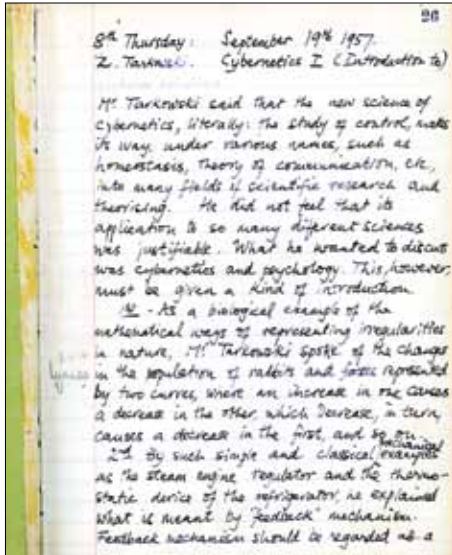 26
8th Thursday: September 19th 1957.
Z. Tarkowski. Cybernetics I (Introduction to)
Mr Tarkowski said that the new science of
cybernetics, literally: the study of control, makes
its way under various names, such as
homeostasis, theory of communication, etc,
into many fields of scientific research and
theorising. He did not feel that its
application to so many different sciences
was justifiable. What he wanted to discuss
was cybernetics and psychology. This, however,
must be given a kind of introduction
1st - As a biological example of the
mathematical ways of representing irregularities
in nature, Mr Tarkowski spoke of the changes
in the population of rabbits and foxes represented
by two curves, where an increase in one causes
a decrease in the other, which decrease, in turn,
causes a decrease in the first, and so on.
2nd By such simple and classical mechanical examples
as the steam engine regulator and the thermo-
static device of the refrigerator, he explained
what is meant by "feedback" mechanism.
Feedback mechanism should be regarded as a